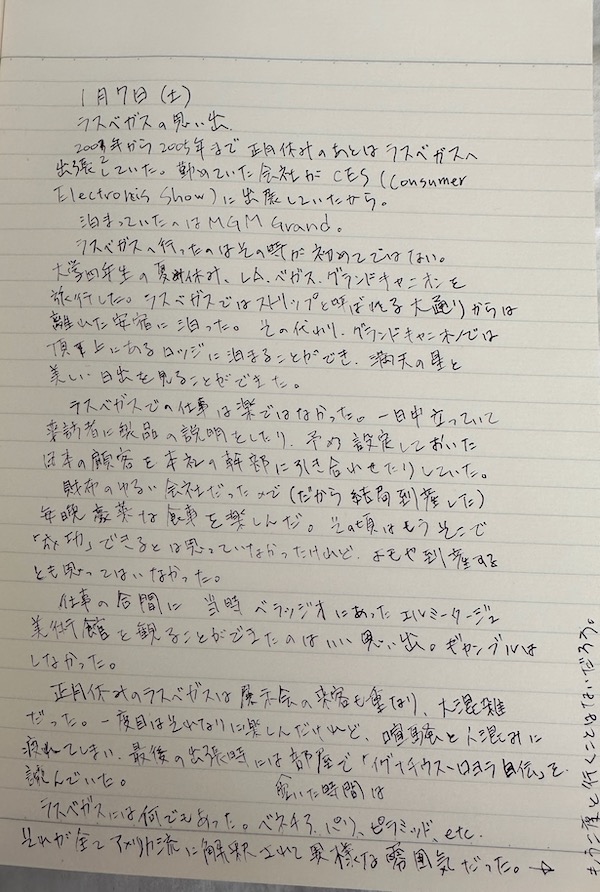 1月7日(土)
ラスベガスの思い出.
2003年から2005年まで正月休みのあとはラスベガスへ
出張していた。勤めていた会社がCES(Consumer
Electronics Show)に出展していたから。
泊まっていたのはMGM Grand。
ラスベガスへ行ったのはその時が初めてではない。
大学四年生の夏休み、LA、ベガス、グランドキャニオンを
旅行した。ラスベガスではストリップと呼ばれる大通りからは
離れた安宿に泊った。その代わり、グランドキャニオンでは
頂上にあるロッジに泊まることができ、満天の星と
美しい日出を見ることができた。
ラスベガスでの仕事は楽ではなかった。一日中立っていて
来訪者に製品の説明をしたり、予め設定しておいた
日本の顧客を本社の幹部に引き合わせたりしていた。
財布のゆるい会社だったので(だから結局到産した)
毎晩豪華な食事を楽しんだ。その頃はもうそこで
「成功」できるとは思っていなかったけれど、よもや到産する
とも思ってはいなかった。
仕事の合間に 当時ベラッジオにあったエルミタージュ
美術館を観ることができたのはいい思い出。ギャンブルは
しなかった。
正月休みのラスベガスは展示会の来客も重なり、大混雑
だった。一度目はそれなりに楽しんだけれど、喧騒と人混みに
疲れてしまい、最後の出張時には部屋で「イグナチウス・ロヨラ自伝」を
読んでいた。
空いた時間は
ラスベガスには何でもあった。ベネチア、パリ、ピラミッド、etc.
それが全てアメリカ流に解釈されて異様な雰囲気だった。→
もう二度と行くことはないだろう。